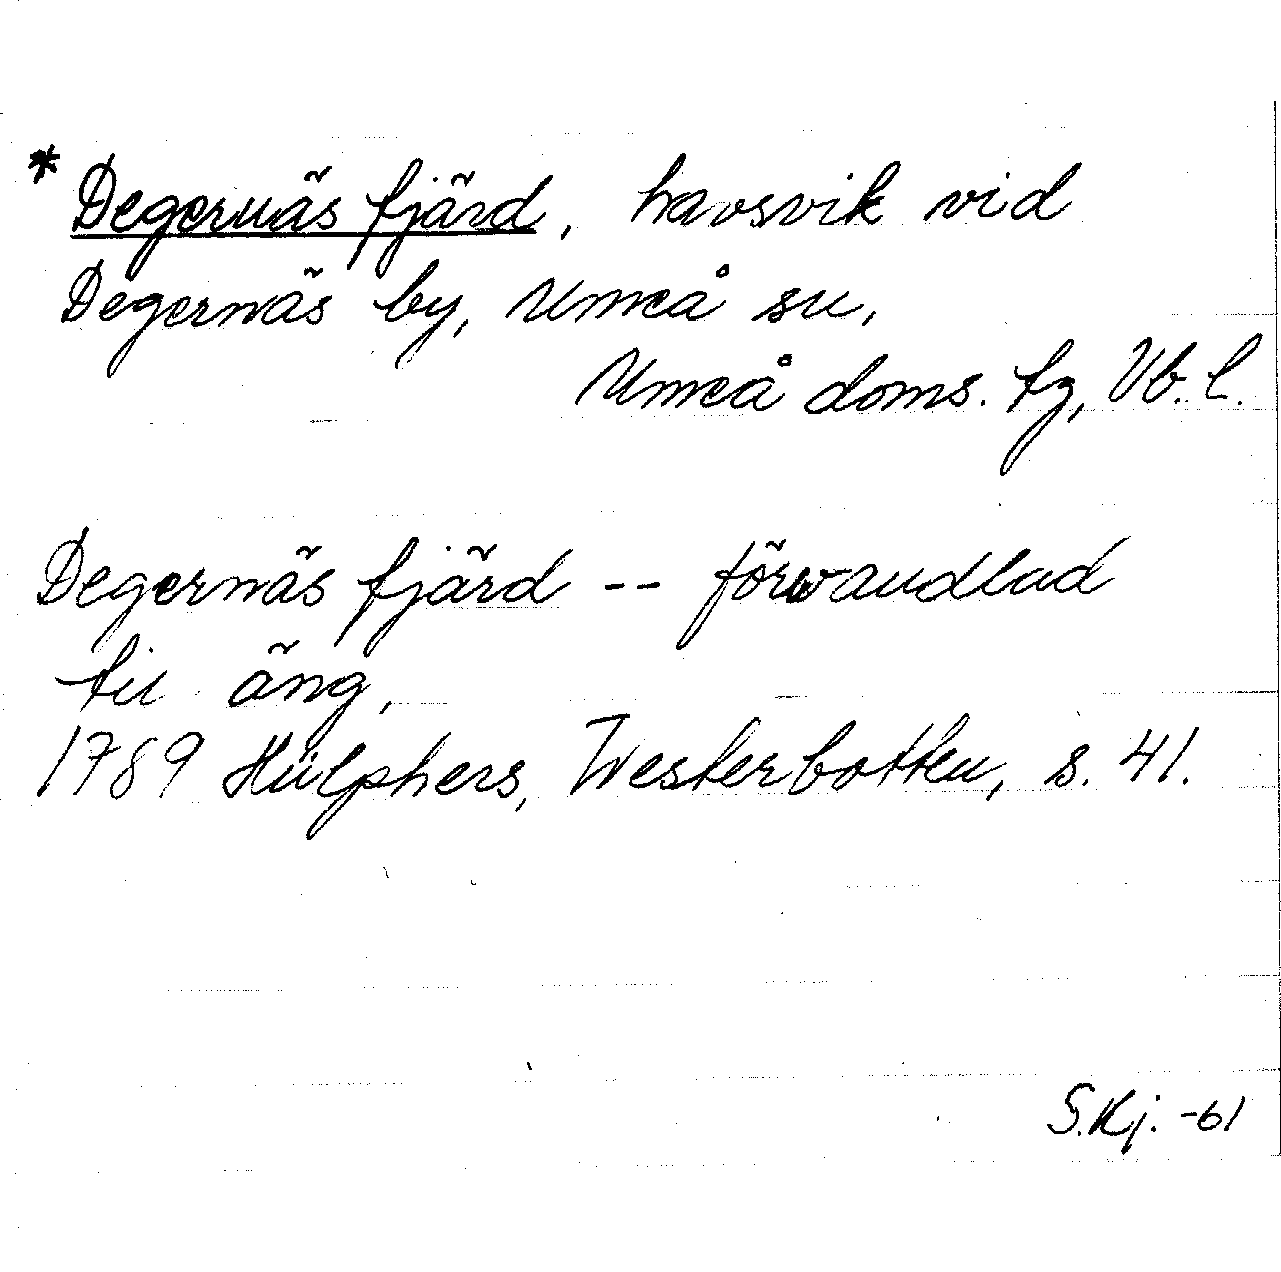 * Degernäs fjärd, havsvik vid
Degernäs by, Umeå sn,
Umeå doms. tg, Vb. l.
Degernäs fjärd -- förwandlad
til äng,
1789 Hülphers, Westerbotten, s. 41.
S.Kj. -61